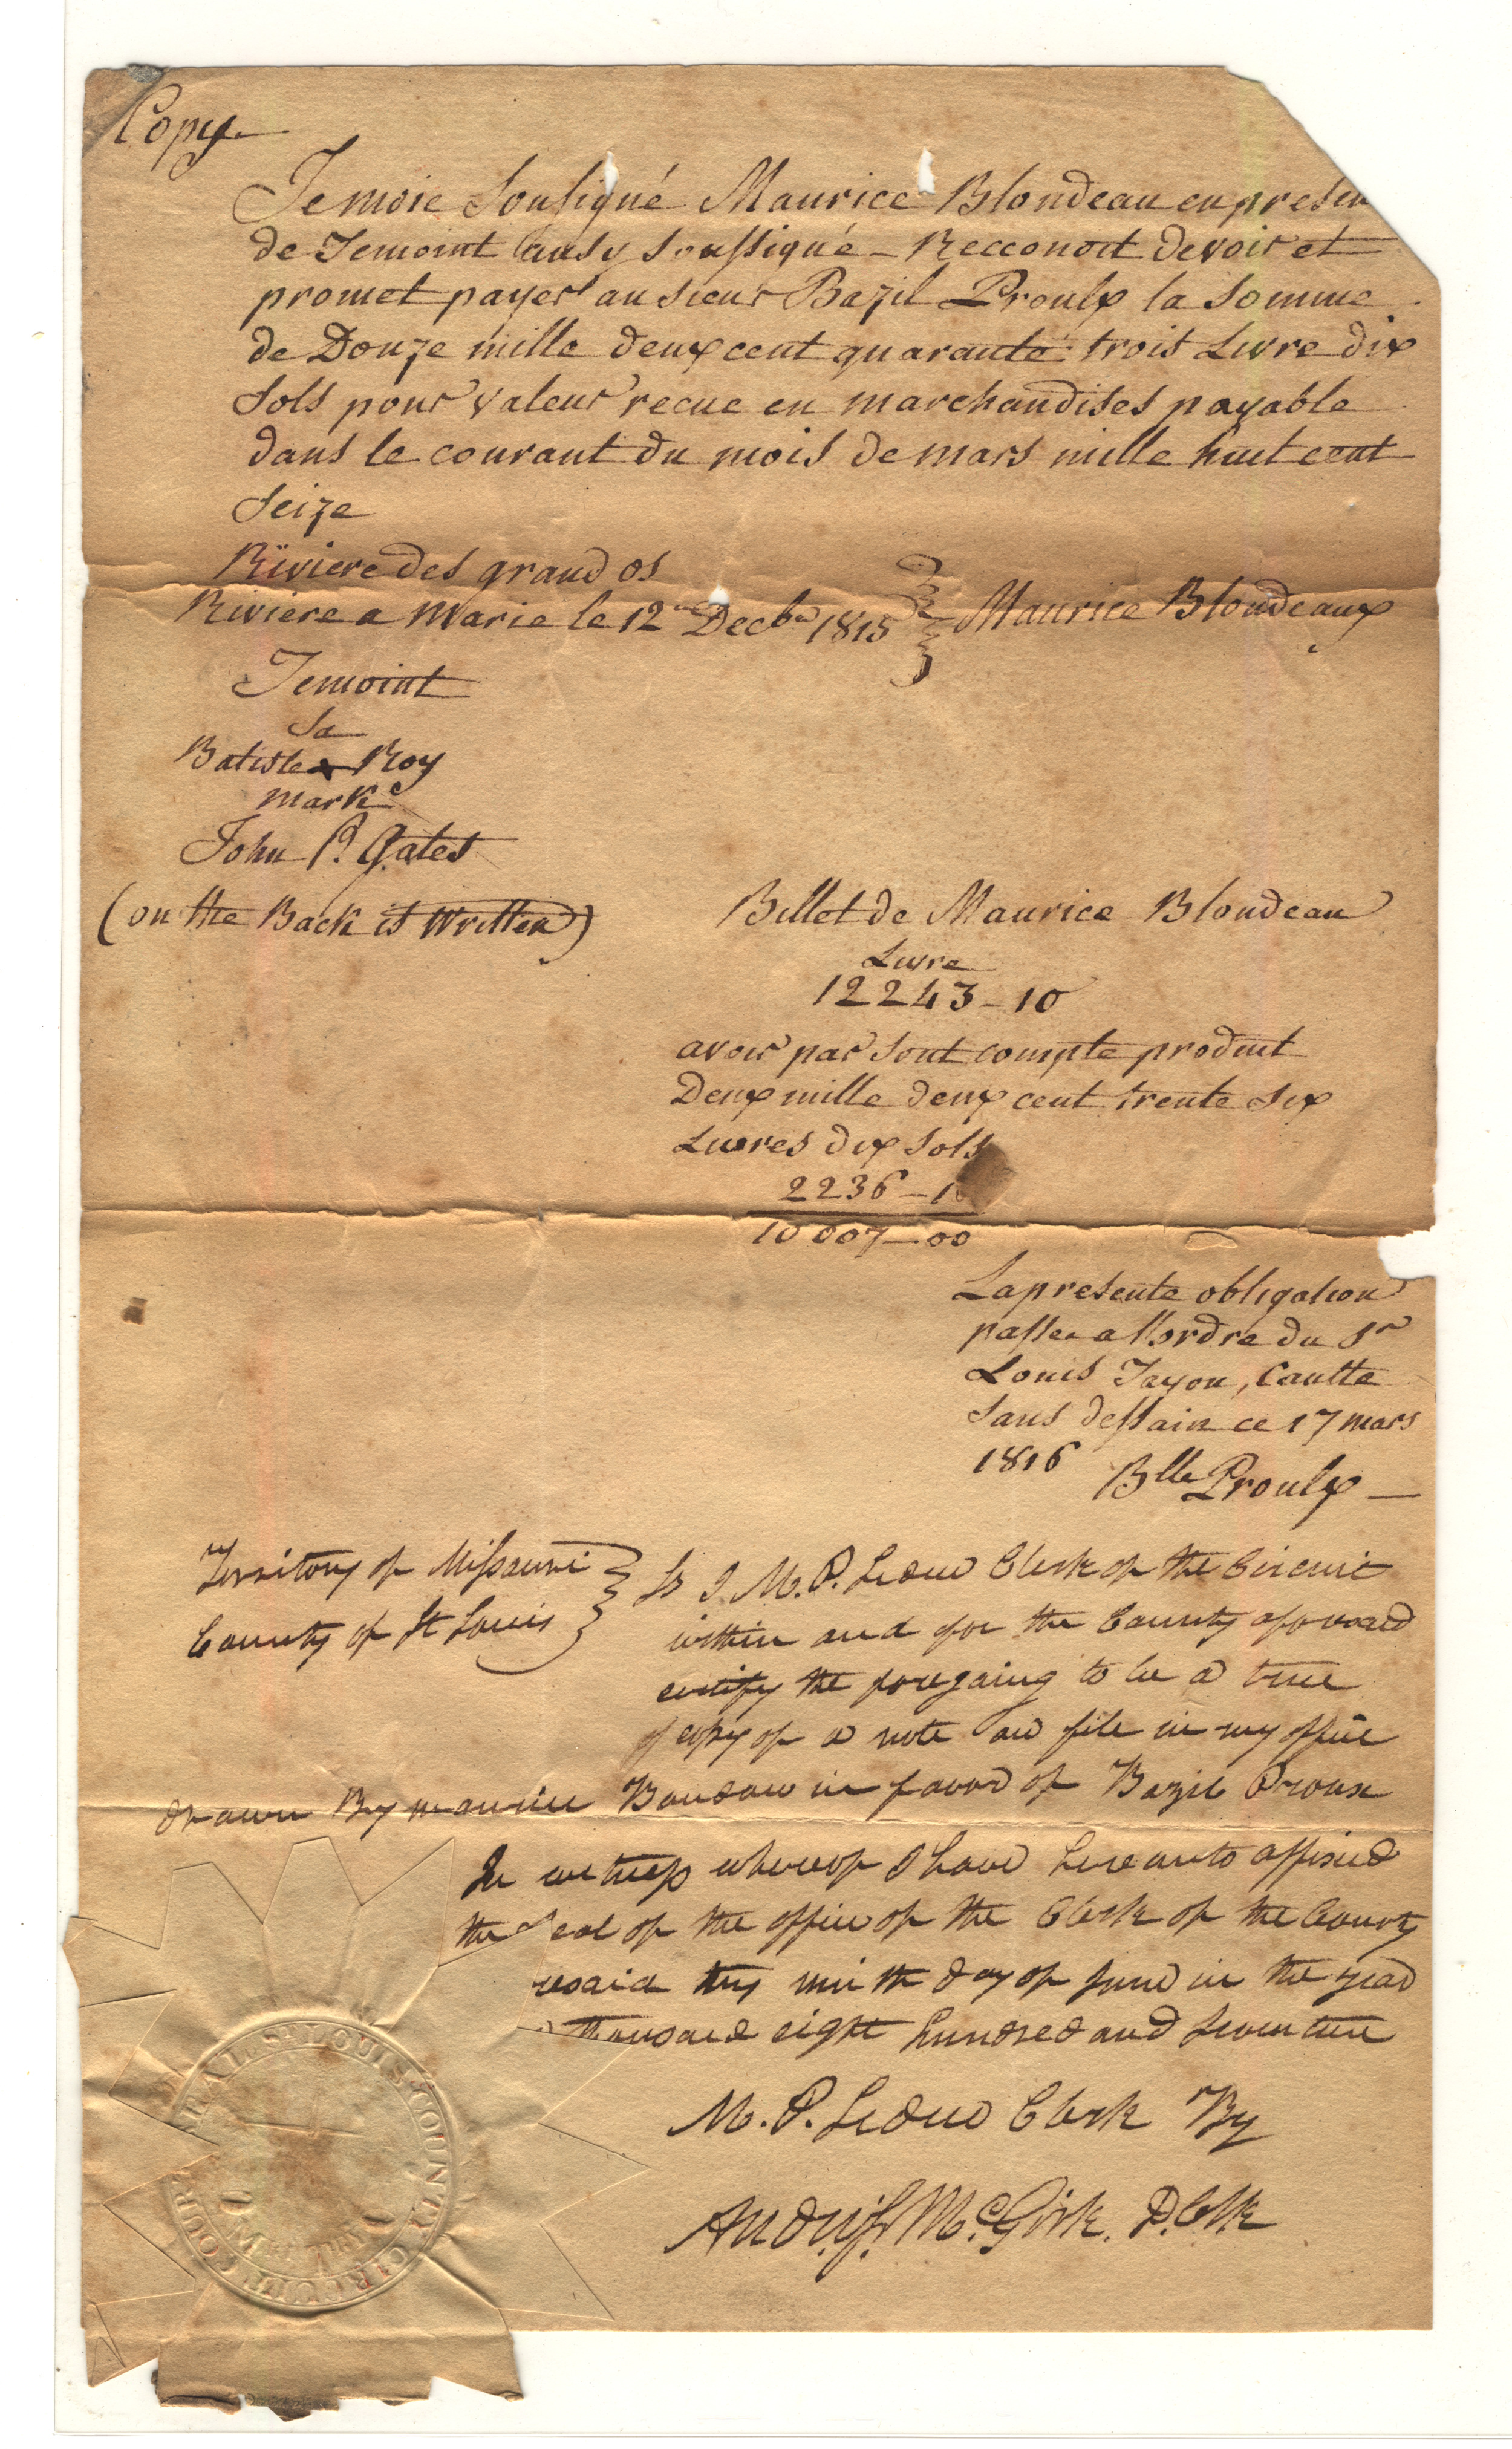 Copy
Jemoie Sousigné Maurice Blondeau en presen
de Temoint ausy soussigné - Recconoit devoir et
promet payer au sieur Bazil Proulx la Somme
de Douze mille deux cent quarante trois Livre dix
Sols pour valeur recue en marchandises payable
dans le courant du mois de mars mille huit cent
Seize
Riviere des grand os
Riviere a Marie le 12 Decbr 1815 Maurice Blondeaux
Temoint
Sa
Batiste x Roy
marke
John P. Gates
(on the Back is Written)
Billet de Maurice Blondeau
Livre
12243 - 10
avoir par sont compte produit
Deux mille deux cent trente six
Livres dix sols
2236 - 10
10007 - 00
La presente obligation
passee a l'ordre du Sr
Louis Tayon, Cautte
sans dessain ce 17 mars
1816
Blle Proulx
Territory of Missouri
County of St Louis
Ss I M. P. Leduc Clerk of the Circuit
within and for the County aforesaid
certify the foregoing to be a true
copy of a note on file in my office
drawn By maurice Bondow in favor of Bazil Proux
In witness whereof I have hereunto affixed
the Seal of the office of the Clerk of the County
resaid this ninth day of June in the year
thousand eight hundred and seventeen
M. P. Leduc Clerk By
Andw. S. McGirk. D. Clk
SEAL ST LOUIS COUNTY CIRCUIT COUR